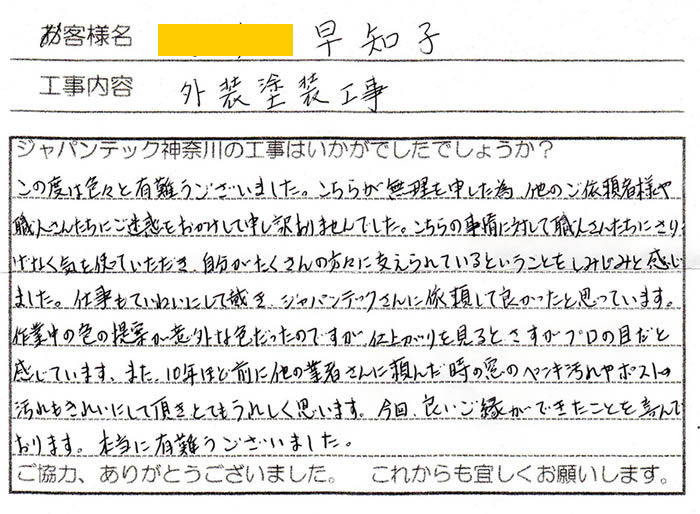 お客様名 早知子
工事内容 外装塗装工事
ジャパンテック神奈川の工事はいかがでしたでしょうか？
この度は色々と有難うございました。こちらが無理を申した為、他のご依頼者様や
職人さんたちにご迷惑をおかけして申し訳ありませんでした。こちらの事情に対して職人さんたちにさり
げなく気を使っていただき、自分がたくさんの方々に支えられているということをしみじみと感じ
ました。仕事もていねいにして戴き、ジャパンテックさんに依頼して良かったと思っています。
作業中の色の提案が意外な色だったのですが、仕上がりを見ると、さすがプロの目だと
感じています。また、10年ほど前に他の業者さんに頼んだ時の窓のペンキ汚れやポストの
汚れもきれいにして頂きとてもうれしく思います。今回、良いご縁ができたことを喜んで
おります。本当に有難うございました。
ご協力、ありがとうございました。 これからも宜しくお願いします。